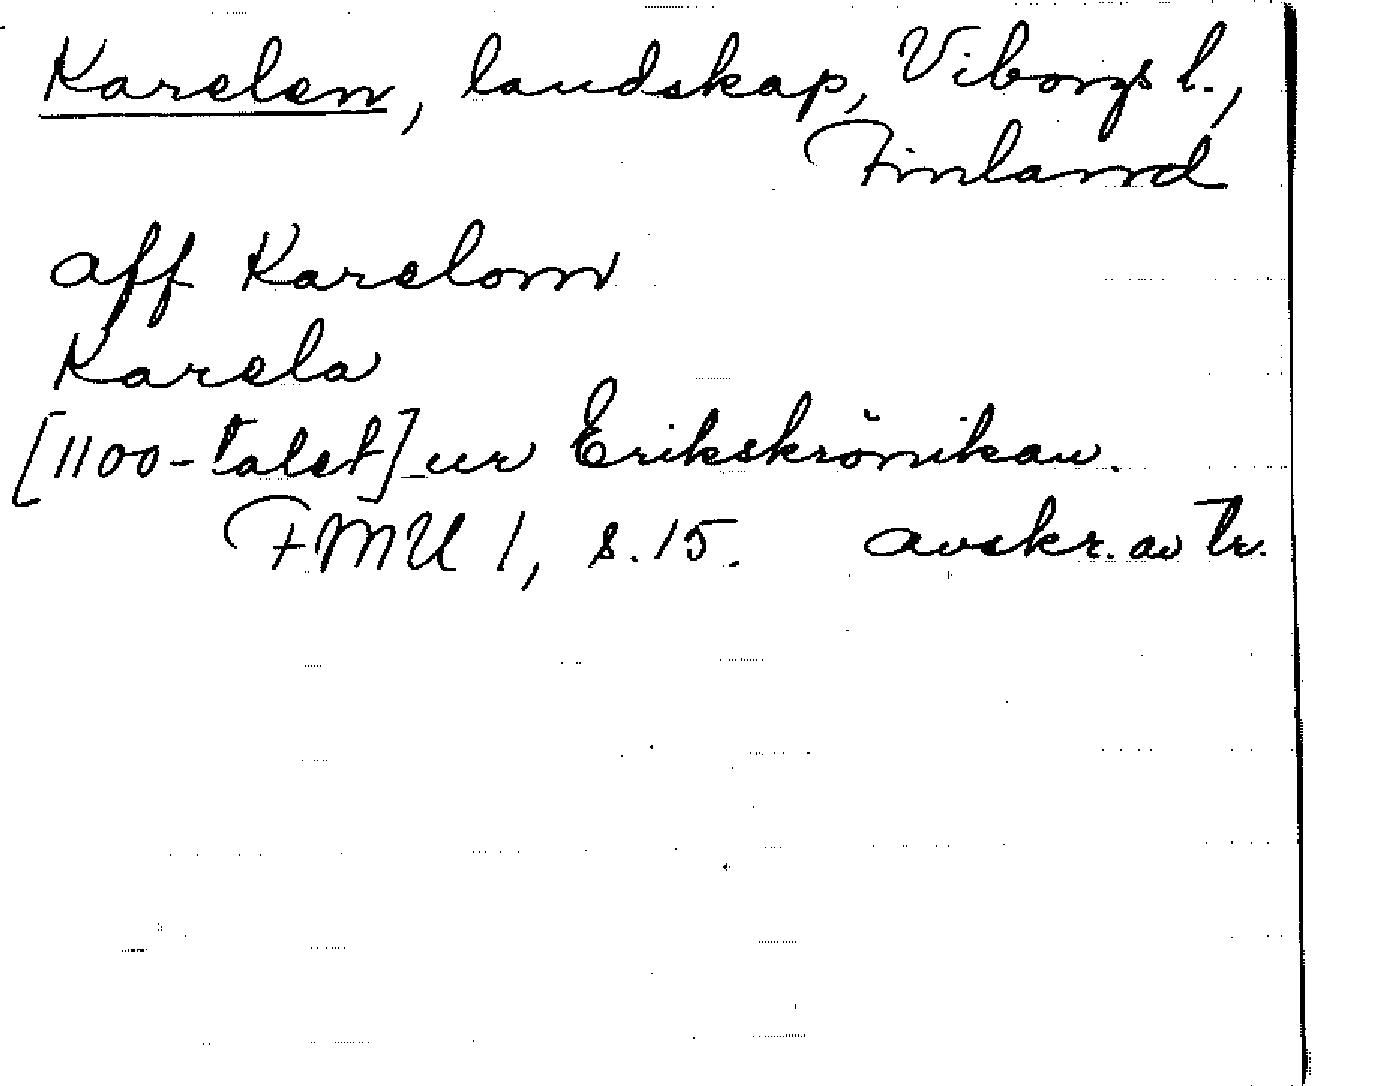 Karelen, landskap, Viborgs l.,
Finland
aff Karelom
Karela
[1100-talet] ur Erikskrönikan.
FMU 1, s. 15. avskr. av tr.